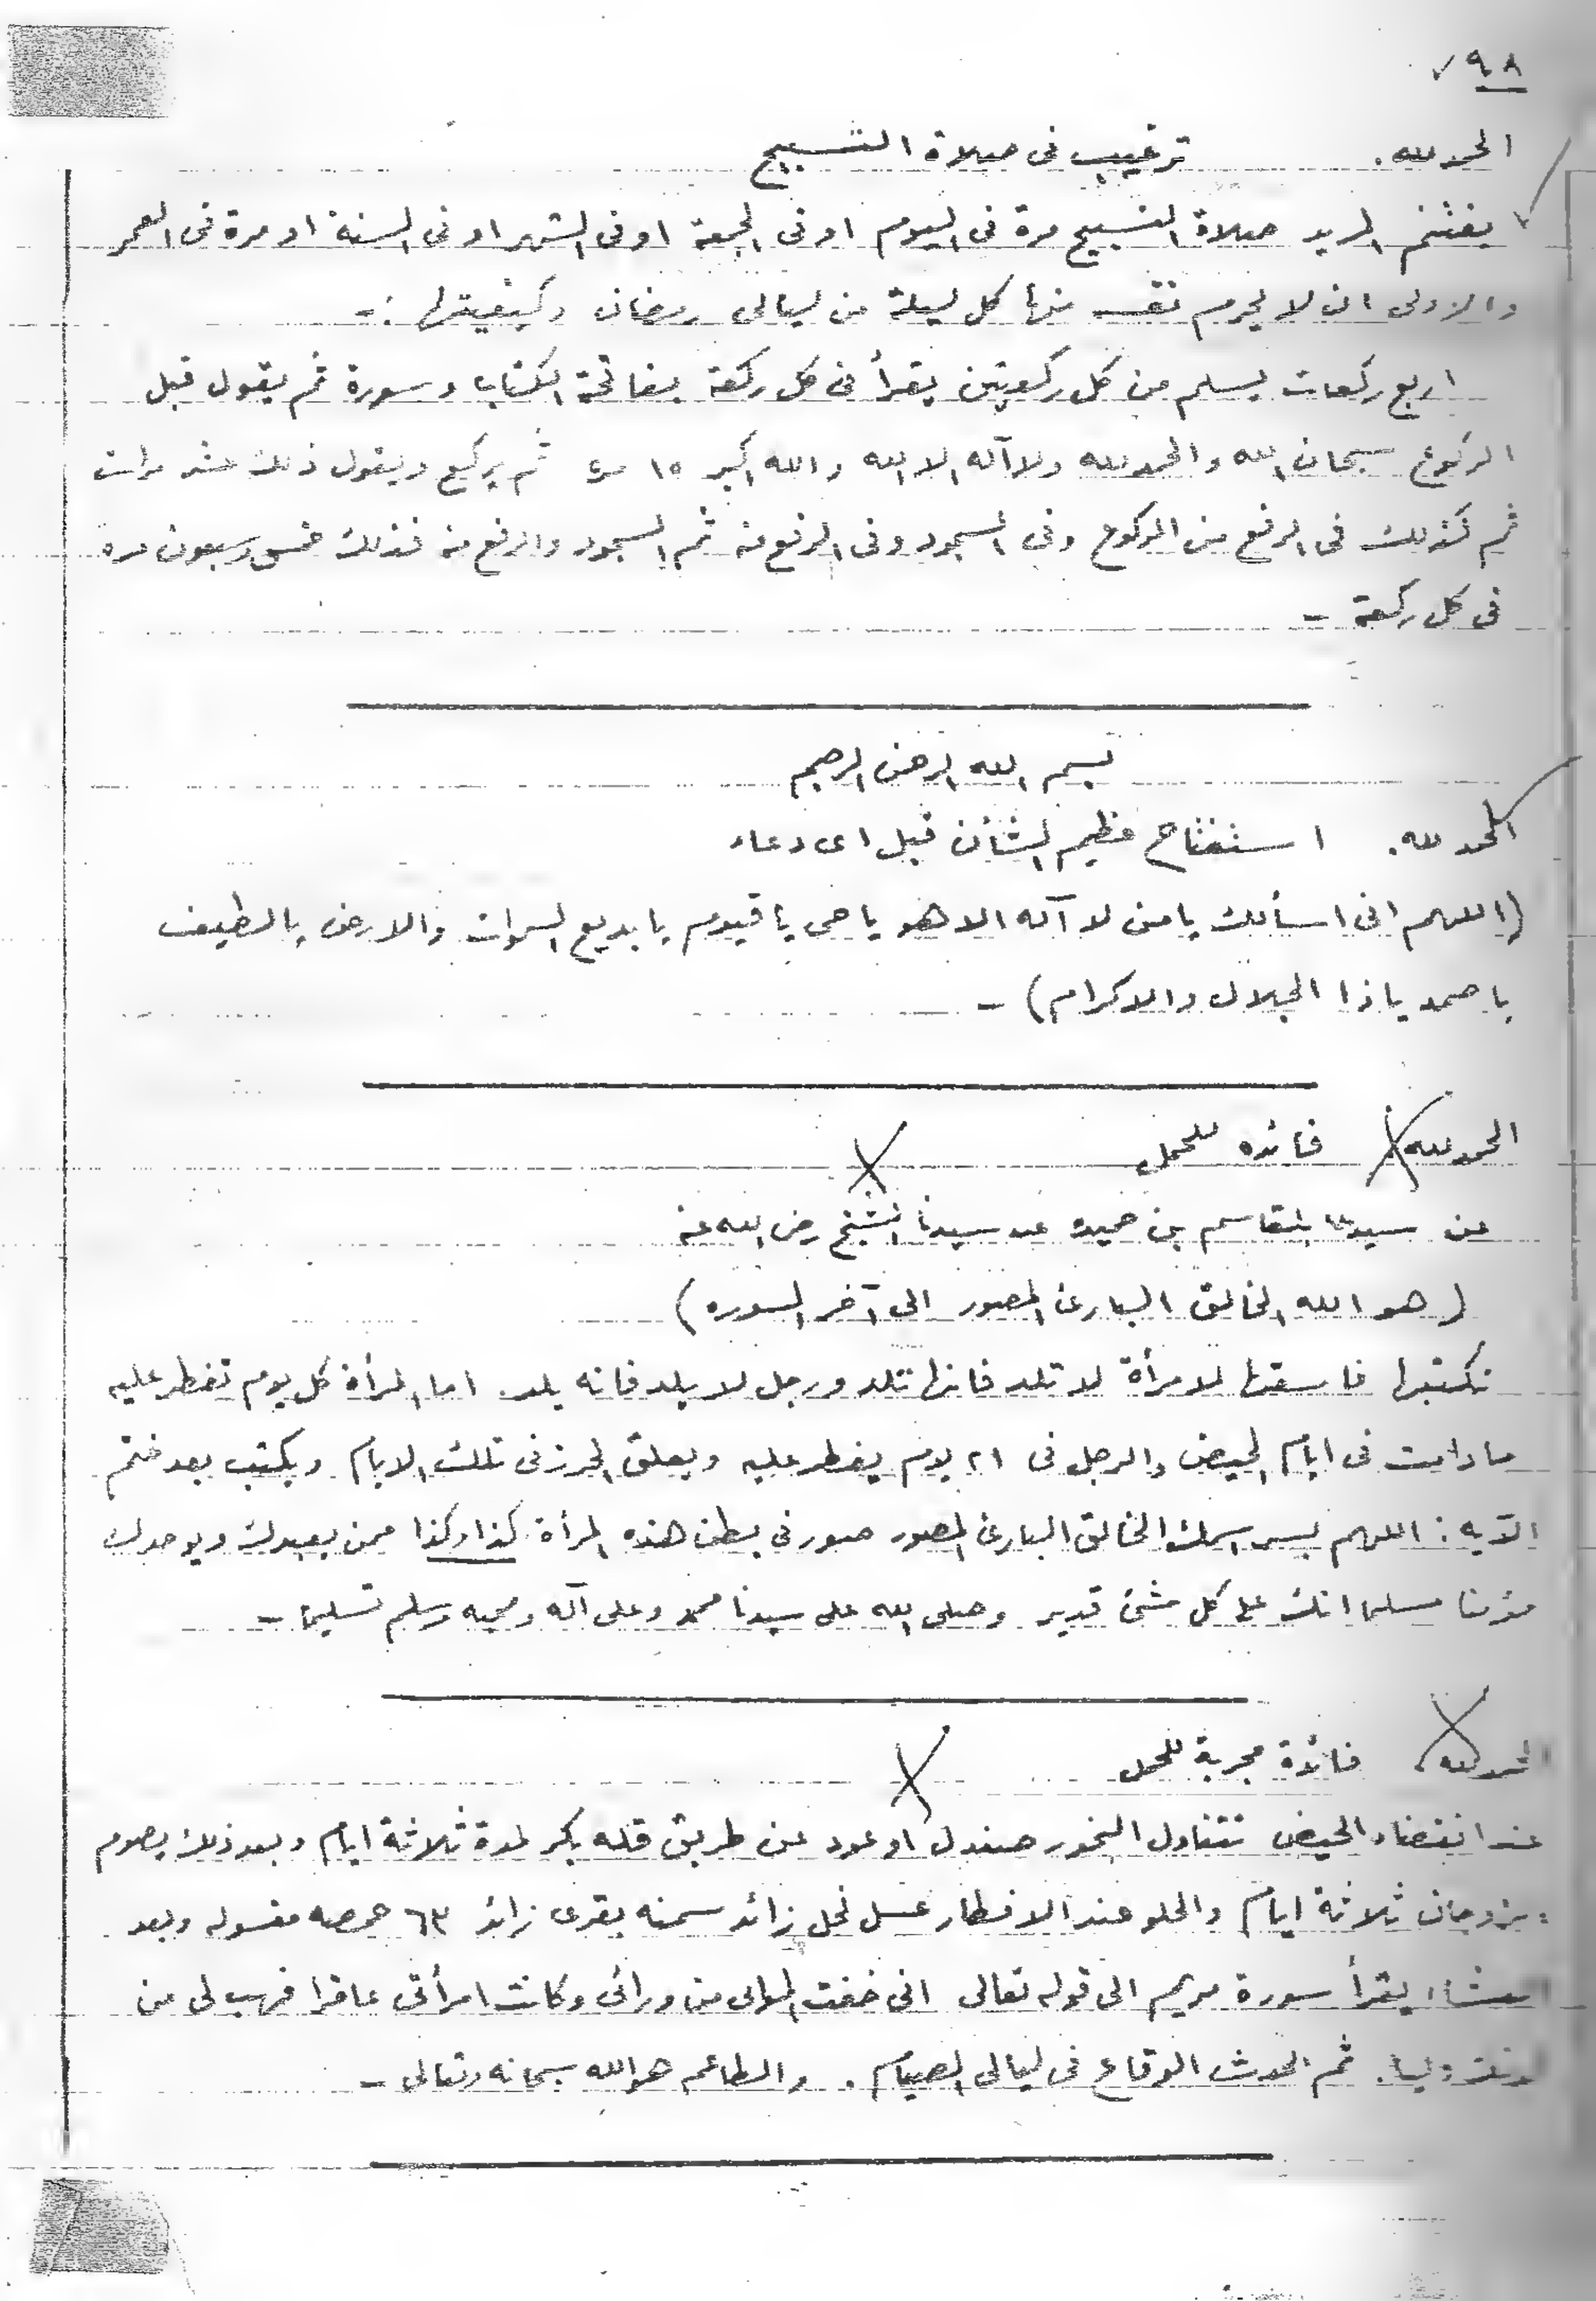 ٩٨
الحمد لله. ترغيب فى صلاة التسبيح
يغتنم المريد صلاة التسبيح مرة فى اليوم او فى الجمعة او فى الشهر او فى السنة او مرة فى العمر
والاولى ان لا يحرم نفسه منها كل ليلة من ليالى رمضان وكيفيتها :-
اربع ركعات يسلم من كل ركعتين يقرأ فى كل ركعة بفاتحة الكتاب وسورة ثم يقول قبل
الركوع سبحان الله والحمد لله ولا آله الا الله والله اكبر ١٥ مرة ثم يركع ويقول ذلك عشر مرات
ثم كذلك فى الرفع من الركوع وفى السجود وفى الرفع منه ثم السجود والرفع منه فذلك خمس وسبعون مره
فى كل ركعة -
بسم الله الرحمن الرحيم
الحمد لله. استفتاح عظيم الشأن قبل اى دعاء
(اللهم انى اسألك يا من لا آله الا هو يا حى يا قيوم يا بديع السموات والارض يا لطيف
يا صمد يا ذا الجلال والاكرام) -
الحمد لله فائده للحمل
عن سيدنا بلقاسم بن حميده عن سيدنا الشيخ رضى الله عنه
(هو الله الخالق البارئ المصور الى آخر السوره)
تكتبها فاسقها لامرأة لا تلد فانها تلد ورجل لا يلد فانه يلد. اما المرأة كل يوم تفطر عليه
ما دامت فى ايام الحيض والرجل فى ٢١ يوم يفطر عليه ويعلق الحرز فى تلك الايام ويكتب بعد ختم
الآيه : اللهم بسر اسمك الخالق البارئ المصور صور فى بطن هذه المرأة كذا وكذا ممن يعبدك ويوحدك
مؤمنا مسلما انك على كل شئ قدير وصلى الله على سيدنا محمد وعلى آله وصحبه وسلم تسليما -
الحمد لله، فائدة مجربة للحمل
عند انقضاء الحيض تتناول البخور صندل او عود عن طريق قله بكر لمدة ثلاثة ايام وبعد ذلك يصوم
الزوجان ثلاثة ايام والحلو عند الافطار عسل نحل زائد سمنه بقرى زائد ٦٣ حمصه مغسوله وبعد
العشاء يقرأ سورة مريم الى قوله تعالى انى خفت الموالى من ورائى وكانت امرأتى عاقرا فهب لى من
لدنك وليا. ثم الوقاع فى ليالى الصيام. هو الله سبحانه وتعالى -